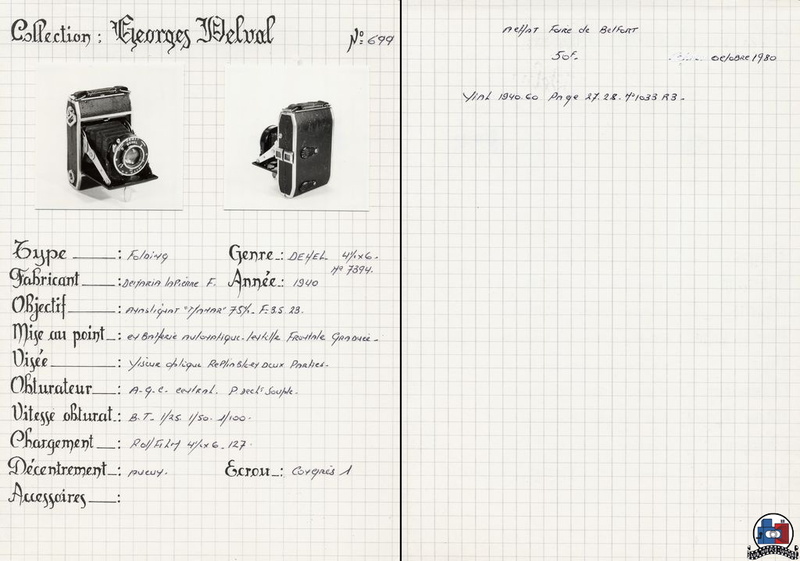 Collection : Georges Delval Nº 699
Type : Folding Genre : DEHEL 4½x6.
Nº 7394.
Fabricant : Demaria Lapierre F. Année : 1940
Objectif : Anastigmat 75% F:3.5 23.
Mise au point : en Batterie automatique. lentille Frontale Graduée.
Visée : Viseur optique Repliable en Deux Parties.
Obturateur : A.G.C. central. P. Decl! Souple.
Vitesse obturat : B.T. 1/25. 1/50. 1/100.
Chargement : Roll Film 4½x6 127.
Décentrement : aucun. Ecrou : Congrès 1
Accessoires :
Achat Foire de Belfort
50F. octobre 1980
Vial 1940.60 Page 27.28. Nº1033 R3.